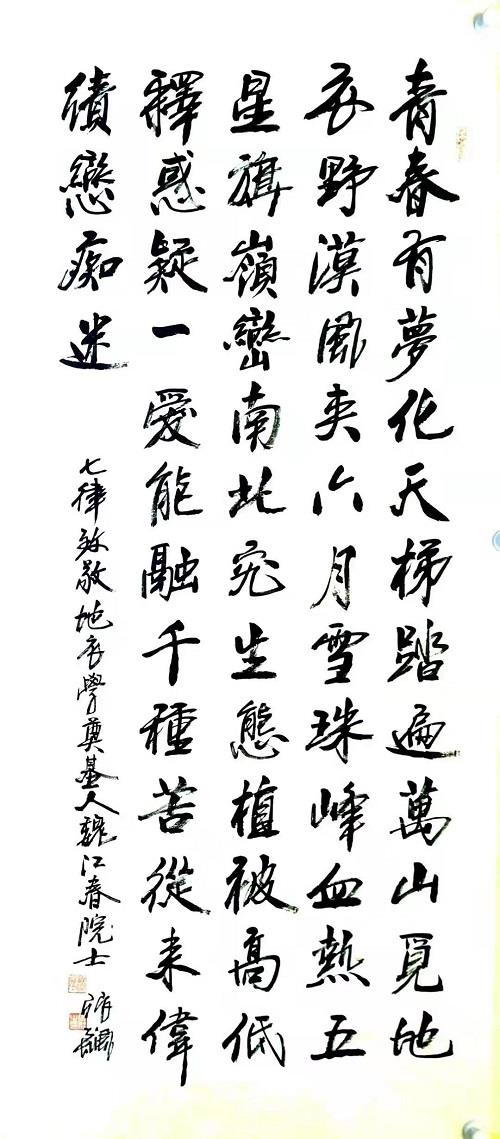 青春有夢化天梯踏遍萬山覓地
衣野漠風夹六月雪珠峰血熱五
星旗嶺巒南北究生態植被高低
釋惑疑一愛能融千種苦從来偉
績戀痴迷
七律致敬地衣學奠基人魏江春院士